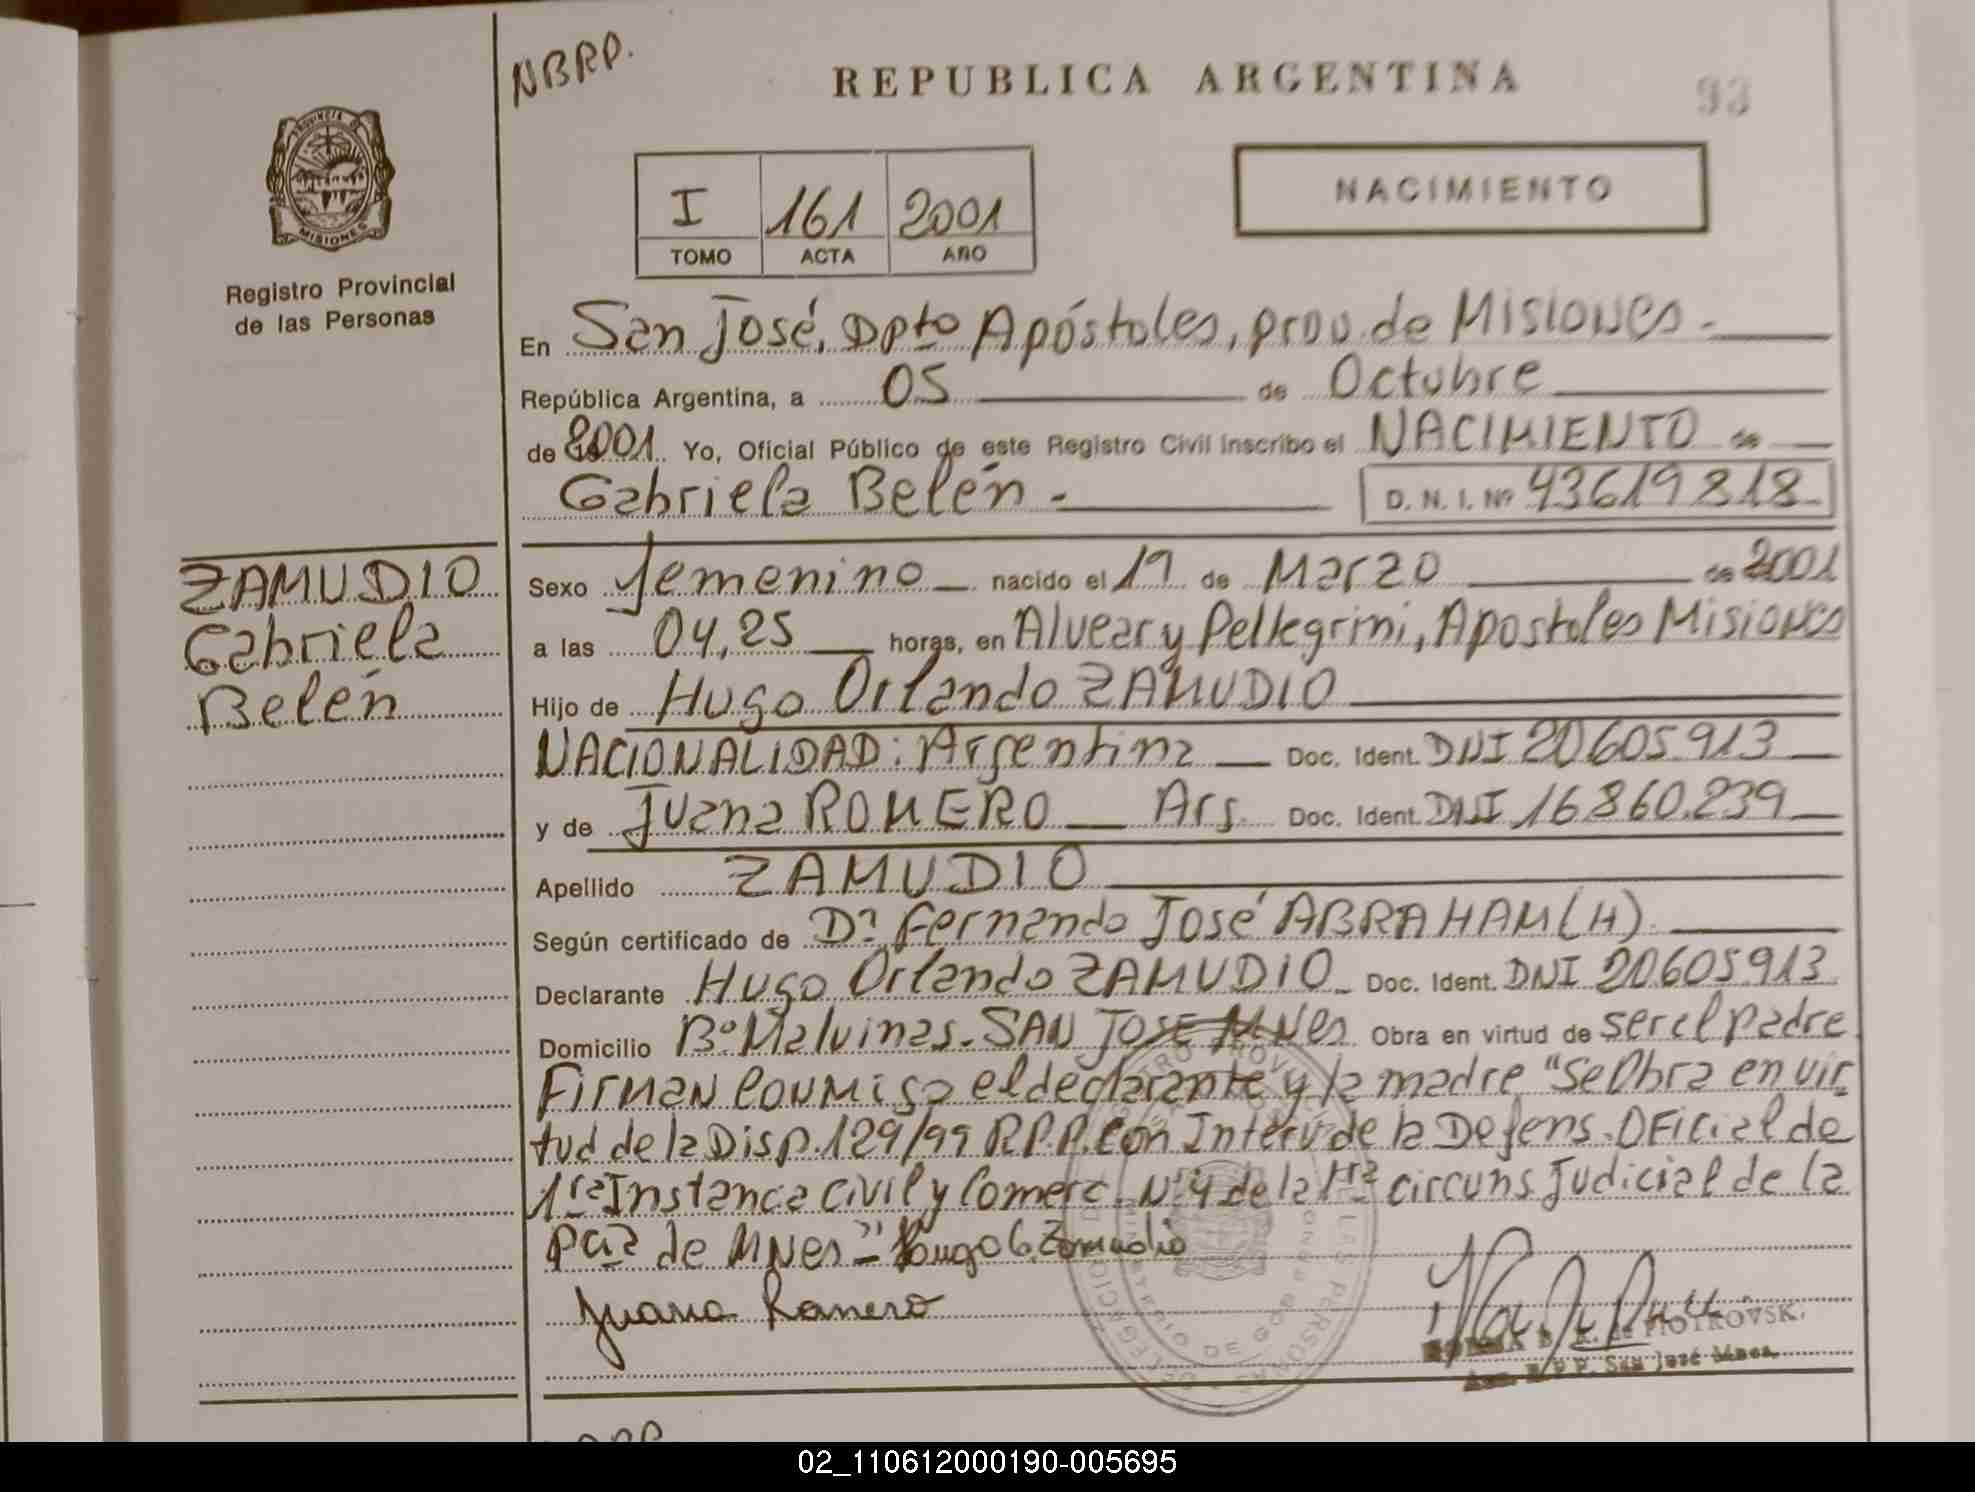 NBRP.
REPUBLICA ARGENTINA
93
PROVINCIA DE
MISIONES
Registro Provincial
de las Personas
I 161 2001
TOMO ACTA AÑO
NACIMIENTO
En San José, Dpto Apóstoles, prov. de Misiones.-
República Argentina, a 05 de Octubre
de 2001 Yo, Oficial Público de este Registro Civil inscribo el NACIMIENTO de
Gabriela Belén.- D. N. I. Nº 43619818
ZAMUDIO
Gabriela
Belén
Sexo femenino nacido el 19 de Marzo de 2001
a las 04,25 horas, en Alvear y Pellegrini, Apostoles Misiones
Hijo de Hugo Orlando ZAMUDIO
NACIONALIDAD: Argentina Doc. Ident. DNI 20605.913
y de Juana ROMERO Arg. Doc. Ident. DNI 16.860.239
Apellido ZAMUDIO
Según certificado de Dr. Fernando José ABRAHAM (H)
Declarante Hugo Orlando ZAMUDIO Doc. Ident. DNI 20605913
Domicilio Bº Malvinas. SAN JOSE MNes Obra en virtud de ser el padre
Firman conmigo el declarante y la madre "Se Obra en vir
tud de la Disp. 129/99 R.P.P. con Interv de la Defens. Oficial de
1ra Instancia civil y Comerc. Nº 4 de la 1ra circuns Judicial de la
paz de MNes"- Hugo O. Zamudio
Juana Romero
PIOTROVSKI
R.P.P. San José Mnes.
02_110612000190-005695